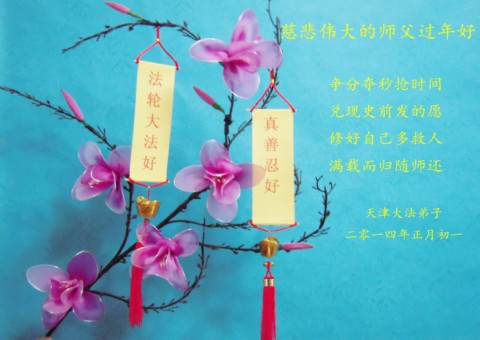 慈悲伟大的师父过年好
争分夺秒抢时间
兑现史前发的愿
修好自己多救人
满载而归随师还
天津大法弟子
二零一四年正月初一
法轮大法好
真善忍好